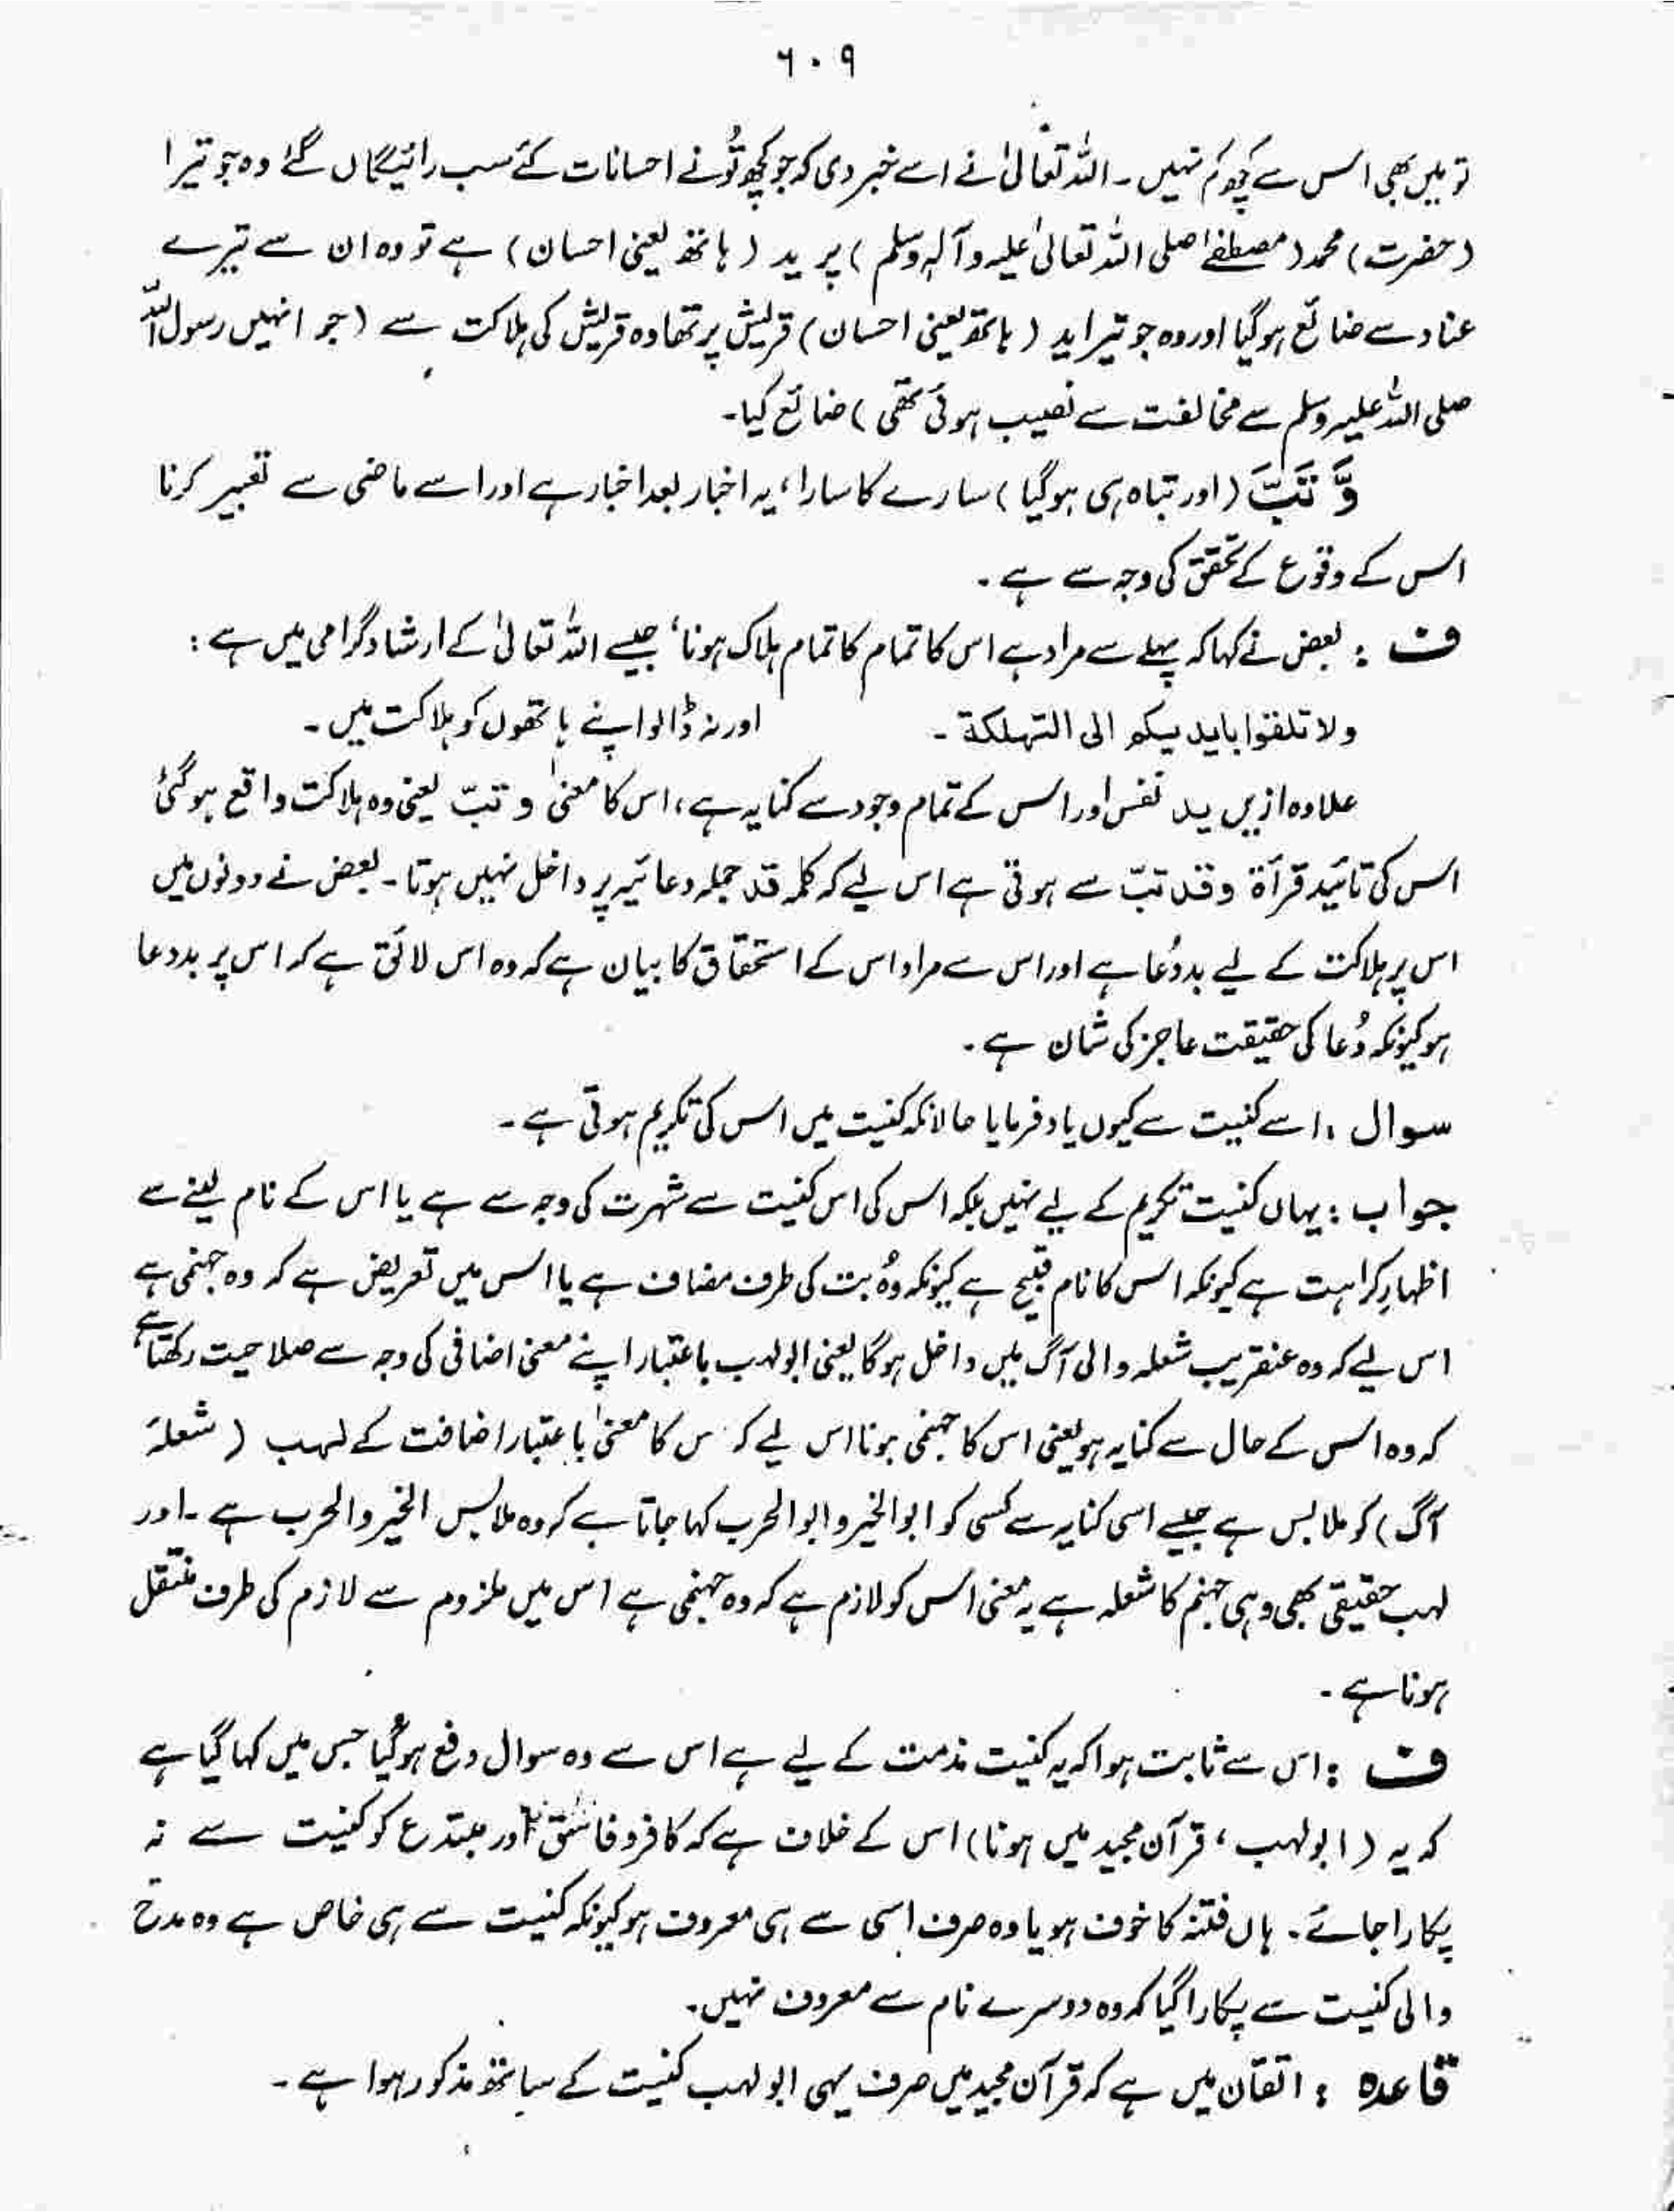 ۶۰۹
تو میں بھی اس سے کچھ کم نہیں ۔ اللہ تعالیٰ نے اسے خبر دی کہ جو کچھ تُو نے احسانات کئے سب رائیگاں گئے وہ جو تیرا
(حضرت) محمد (مصطفےٰ صلی اللہ تعالیٰ علیہ وآلہٖ وسلم) پر ید (ہاتھ یعنی احسان) ہے تو وہ ان سے تیرے
عناد سے ضائع ہو گیا اور وہ جو تیرا ید (ہاتھ یعنی احسان) قریش پر تھا وہ قریش کی ہلاکت سے (جو انہیں رسول اللہ
صلی اللہ علیہ وسلم سے مخالفت سے نصیب ہوئی تھی) ضائع کیا۔
وَّ تَبَّ (اور تباہ ہی ہو گیا) سارے کا سارا، یہ اخبار بعد اخبار ہے اور اسے ماضی سے تعبیر کرنا
اس کے وقوع کے تحقق کی وجہ سے ہے ۔
ف : بعض نے کہا کہ پہلے سے مراد ہے اس کا تمام کا تمام ہلاک ہونا، جیسے اللہ تعالیٰ کے ارشاد گرامی میں ہے :
ولا تلقوا بایدیکم الی التہلکۃ ۔ اور نہ ڈالو اپنے ہاتھوں کو ہلاکت میں ۔
علاوہ ازیں ید نفس اور اس کے تمام وجود سے کنایہ ہے، اس کا معنیٰ و تبّ یعنی وہ ہلاکت واقع ہو گئی
اس کی تائید قرأۃ وقد تبّ سے ہوتی ہے اس لیے کہ کلمہ قد جملہ دعائیہ پر داخل نہیں ہوتا ۔ بعض نے دونوں میں
اس پر ہلاکت کے لیے بددُعا ہے اور اس سے مراد اس کے استحقاق کا بیان ہے کہ وہ اس لائق ہے کہ اس پر بددعا
ہو کیونکہ دُعا کی حقیقت عاجز کی شان ہے ۔
سوال : اسے کنیت سے کیوں یاد فرمایا حالانکہ کنیت میں اس کی تکریم ہوتی ہے ۔
جواب : یہاں کنیت تکریم کے لیے نہیں بلکہ اس کی اس کنیت سے شہرت کی وجہ سے ہے یا اس کے نام لینے سے
اظہارِ کراہت ہے کیونکہ اس کا نام قبیح ہے کیونکہ وہُ بت کی طرف مضاف ہے یا اس میں تعریض ہے کہ وہ جہنمی ہے
اس لیے کہ وہ عنقریب شعلہ والی آگ میں داخل ہو گا یعنی ابولہب باعتبار اپنے معنی اضافی کی وجہ سے صلاحیت رکھتا ہے
کہ وہ اس کے حال سے کنایہ ہو یعنی اس کا جہنمی ہونا اس لیے کہ س کا معنیٰ باعتبار اضافت کے لہب (شعلۂ
آگ) کو ملابس ہے جیسے اسی کنایہ سے کسی کو ابوالخیر و ابوالحرب کہا جاتا ہے کہ وہ ملابس الخیر والحرب ہے ۔ اور
لہب حقیقی بھی وہی جہنم کا شعلہ ہے یہ معنی اس کو لازم ہے کہ وہ جہنمی ہے اس میں ملزوم سے لازم کی طرف منتقل
ہونا ہے ۔
ف : اس سے ثابت ہوا کہ یہ کنیت مذمت کے لیے ہے اس سے وہ سوال دفع ہو گیا جس میں کہا گیا ہے
کہ یہ (ابولہب، قرآن مجید میں ہونا) اس کے خلاف ہے کہ کافر و فاسق اور مبتدع کو کنیت سے نہ
پکارا جائے ۔ ہاں فتنہ کا خوف ہو یا وہ صرف اسی سے ہی معروف ہو کیونکہ کنیت سے ہی خاص ہے وہ مدح
والی کنیت سے پکارا گیا کہ وہ دوسرے نام سے معروف نہیں۔
قاعدہ : اتقان میں ہے کہ قرآن مجید میں صرف یہی ابولہب کنیت کے ساتھ مذکور ہوا ہے ۔